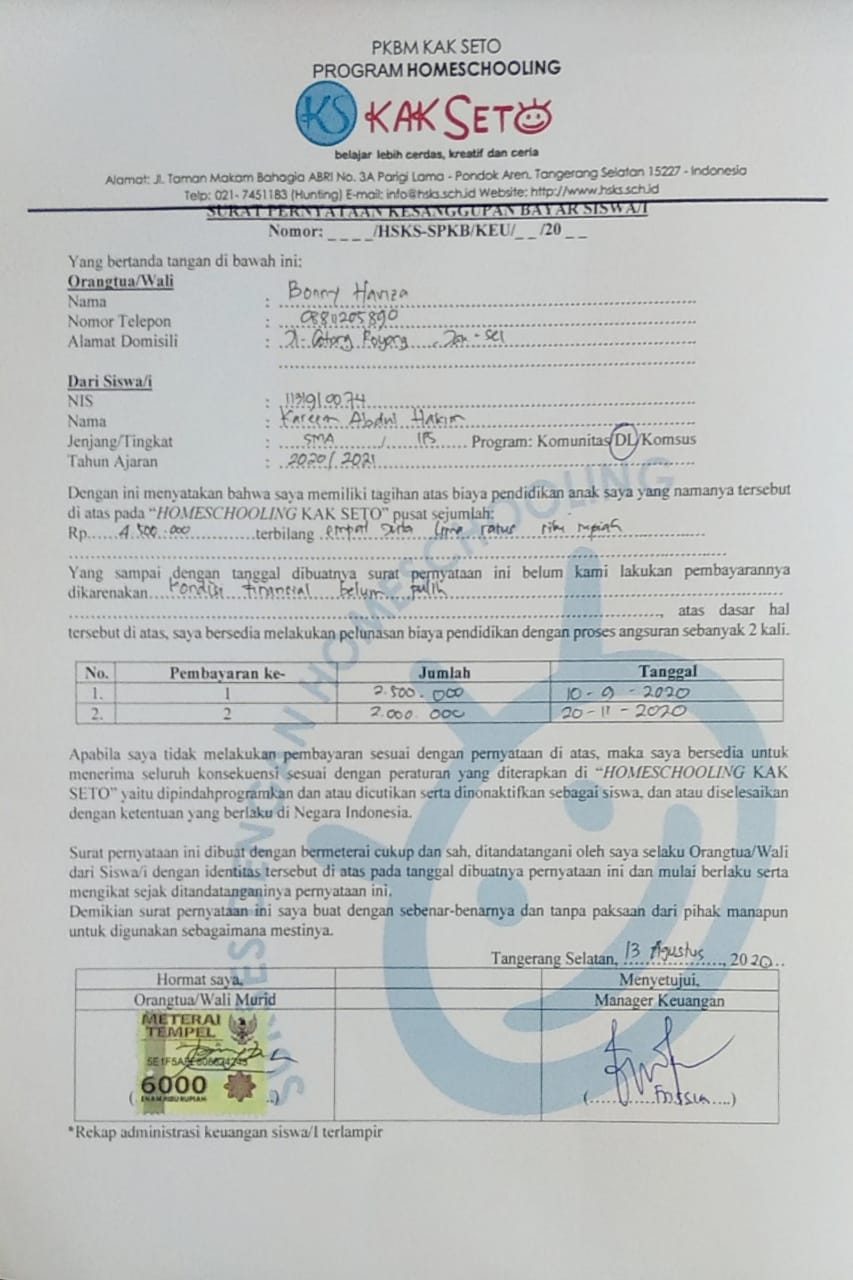 PKBM KAK SETO
PROGRAM HOMESCHOOLING
KS KAK SETO
belajar lebih cerdas, kreatif dan ceria
Alamat: Jl. Taman Makam Bahagia ABRI No. 3A Parigi Lama - Pondok Aren, Tangerang Selatan 15227 - Indonesia
Telp: 021- 7451183 (Hunting) E-mail: info@hsks.sch.id Website: http://www.hsks.sch.id
SURAT PERNYATAAN KESANGGUPAN BAYAR SISWA/I
Nomor: _ _ _ _/HSKS-SPKB/KEU/_ _ /20 _ _
Yang bertanda tangan di bawah ini:
Orangtua/Wali
Nama : Bonny Haviza
Nomor Telepon : 08811205890
Alamat Domisili : Jl. Gotong Royong Jak-Sel
Dari Siswa/i
NIS : 1131910074
Nama : Kareem Abdul Hakim
Jenjang/Tingkat : SMA / IPS Program: Komunitas/DL/Komsus
Tahun Ajaran : 2020/2021
Dengan ini menyatakan bahwa saya memiliki tagihan atas biaya pendidikan anak saya yang namanya tersebut
di atas pada “HOMESCHOOLING KAK SETO” pusat sejumlah:
Rp. 4.500.000 terbilang empat juta lima ratus ribu rupiah
Yang sampai dengan tanggal dibuatnya surat pernyataan ini belum kami lakukan pembayarannya
dikarenakan Kondisi financial belum pulih
, atas dasar hal
tersebut di atas, saya bersedia melakukan pelunasan biaya pendidikan dengan proses angsuran sebanyak 2 kali.
No. Pembayaran ke- Jumlah Tanggal
1. 1 2.500.000 10-9-2020
2. 2 2.000.000 20-11-2020
Apabila saya tidak melakukan pembayaran sesuai dengan pernyataan di atas, maka saya bersedia untuk
menerima seluruh konsekuensi sesuai dengan peraturan yang diterapkan di “HOMESCHOOLING KAK
SETO” yaitu dipindahprogramkan dan atau dicutikan serta dinonaktifkan sebagai siswa, dan atau diselesaikan
dengan ketentuan yang berlaku di Negara Indonesia.
Surat pernyataan ini dibuat dengan bermeterai cukup dan sah, ditandatangani oleh saya selaku Orangtua/Wali
dari Siswa/i dengan identitas tersebut di atas pada tanggal dibuatnya pernyataan ini dan mulai berlaku serta
mengikat sejak ditandatanganinya pernyataan ini.
Demikian surat pernyataan ini saya buat dengan sebenar-benarnya dan tanpa paksaan dari pihak manapun
untuk digunakan sebagaimana mestinya.
Tangerang Selatan, 13 Agustus, 2020
Hormat saya, Menyetujui,
Orangtua/Wali Murid Manager Keuangan
METERAI
TEMPEL
6000
ENAM RIBU RUPIAH
*Rekap administrasi keuangan siswa/I terlampir